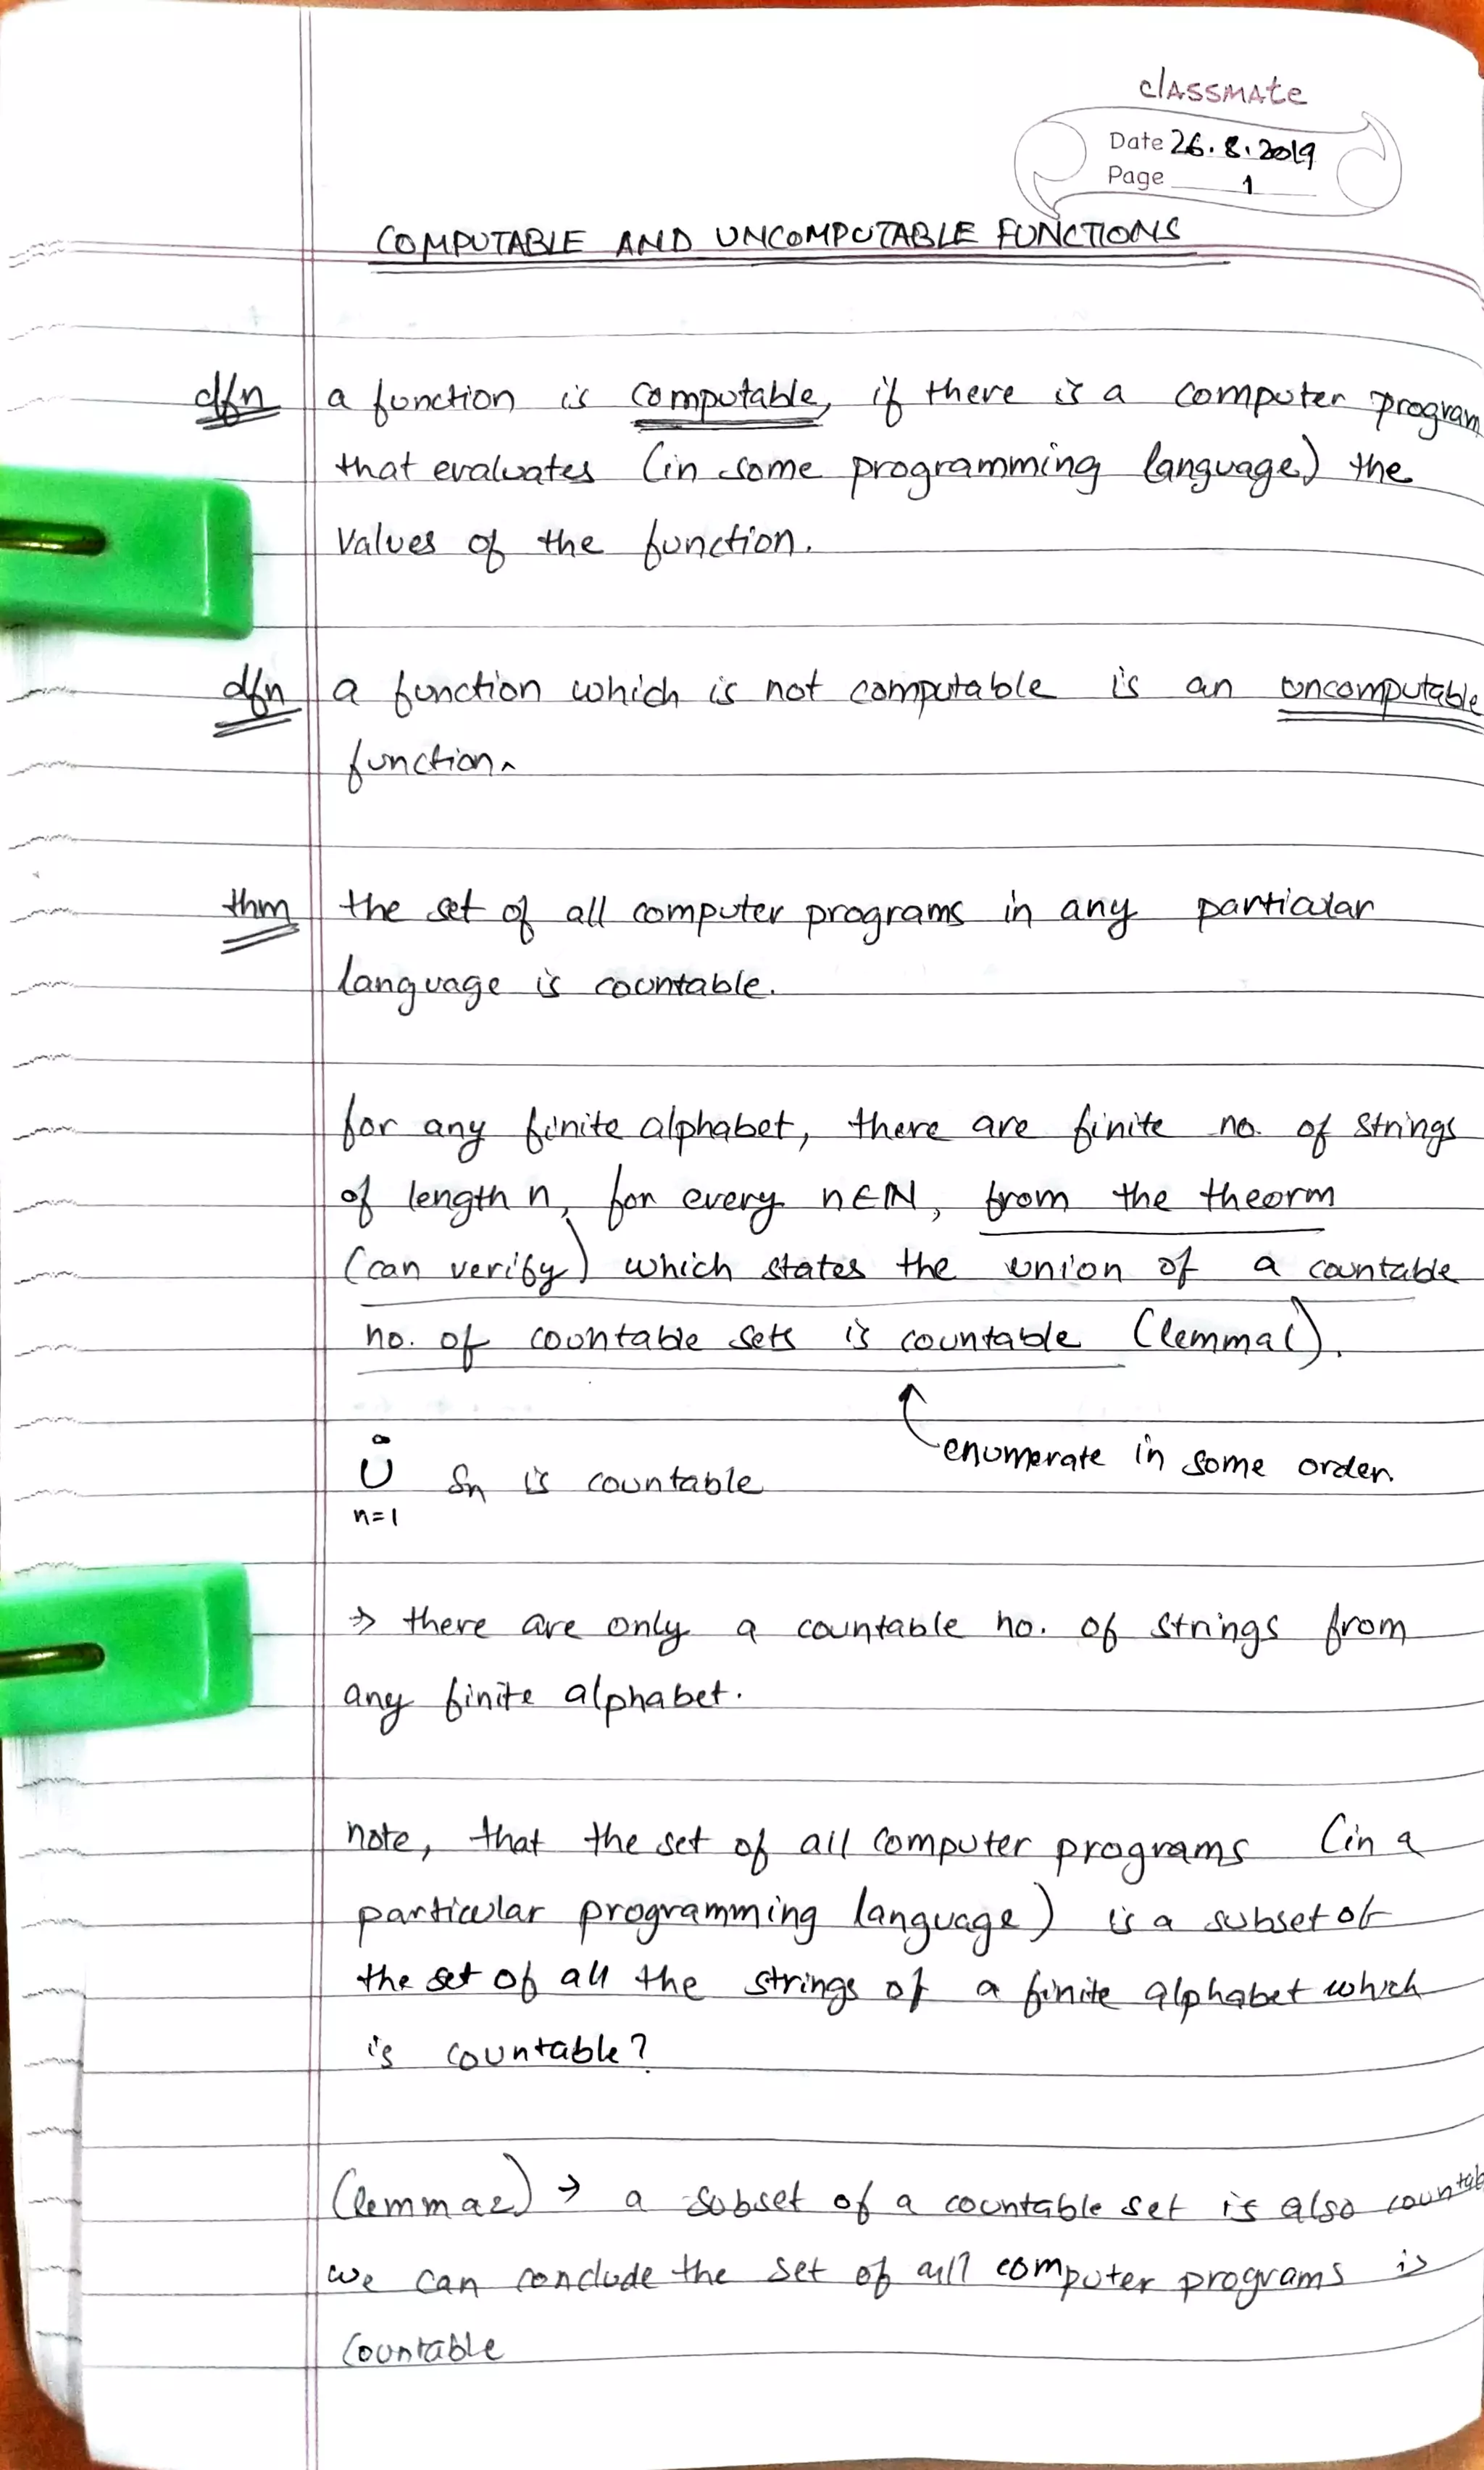 classmate
Date 26.8.2019
Page 1
COMPUTABLE AND UNCOMPUTABLE FUNCTIONS
dfn a function is computable, if there is a computer program
that evaluates (in some programming language) the
values of the function.
dfn a function which is not computable is an uncomputable
function.
thm the set of all computer programs in any particular
language is countable.
for any finite alphabet, there are finite no. of strings
of length n, for every n∈ℕ, from the theorm
(can verify) which states the union of a countable
no. of countable sets is countable (lemma1).
enumerate in some order.
∞
∪ Sn is countable
n=1
→ there are only a countable no. of strings from
any finite alphabet.
note, that the set of all computer programs (in a
particular programming language) is a subset of
the set of all the strings of a finite alphabet which
is countable?
(lemma2) → a subset of a countable set is also countab
we can conclude the set of all computer programs is
countable